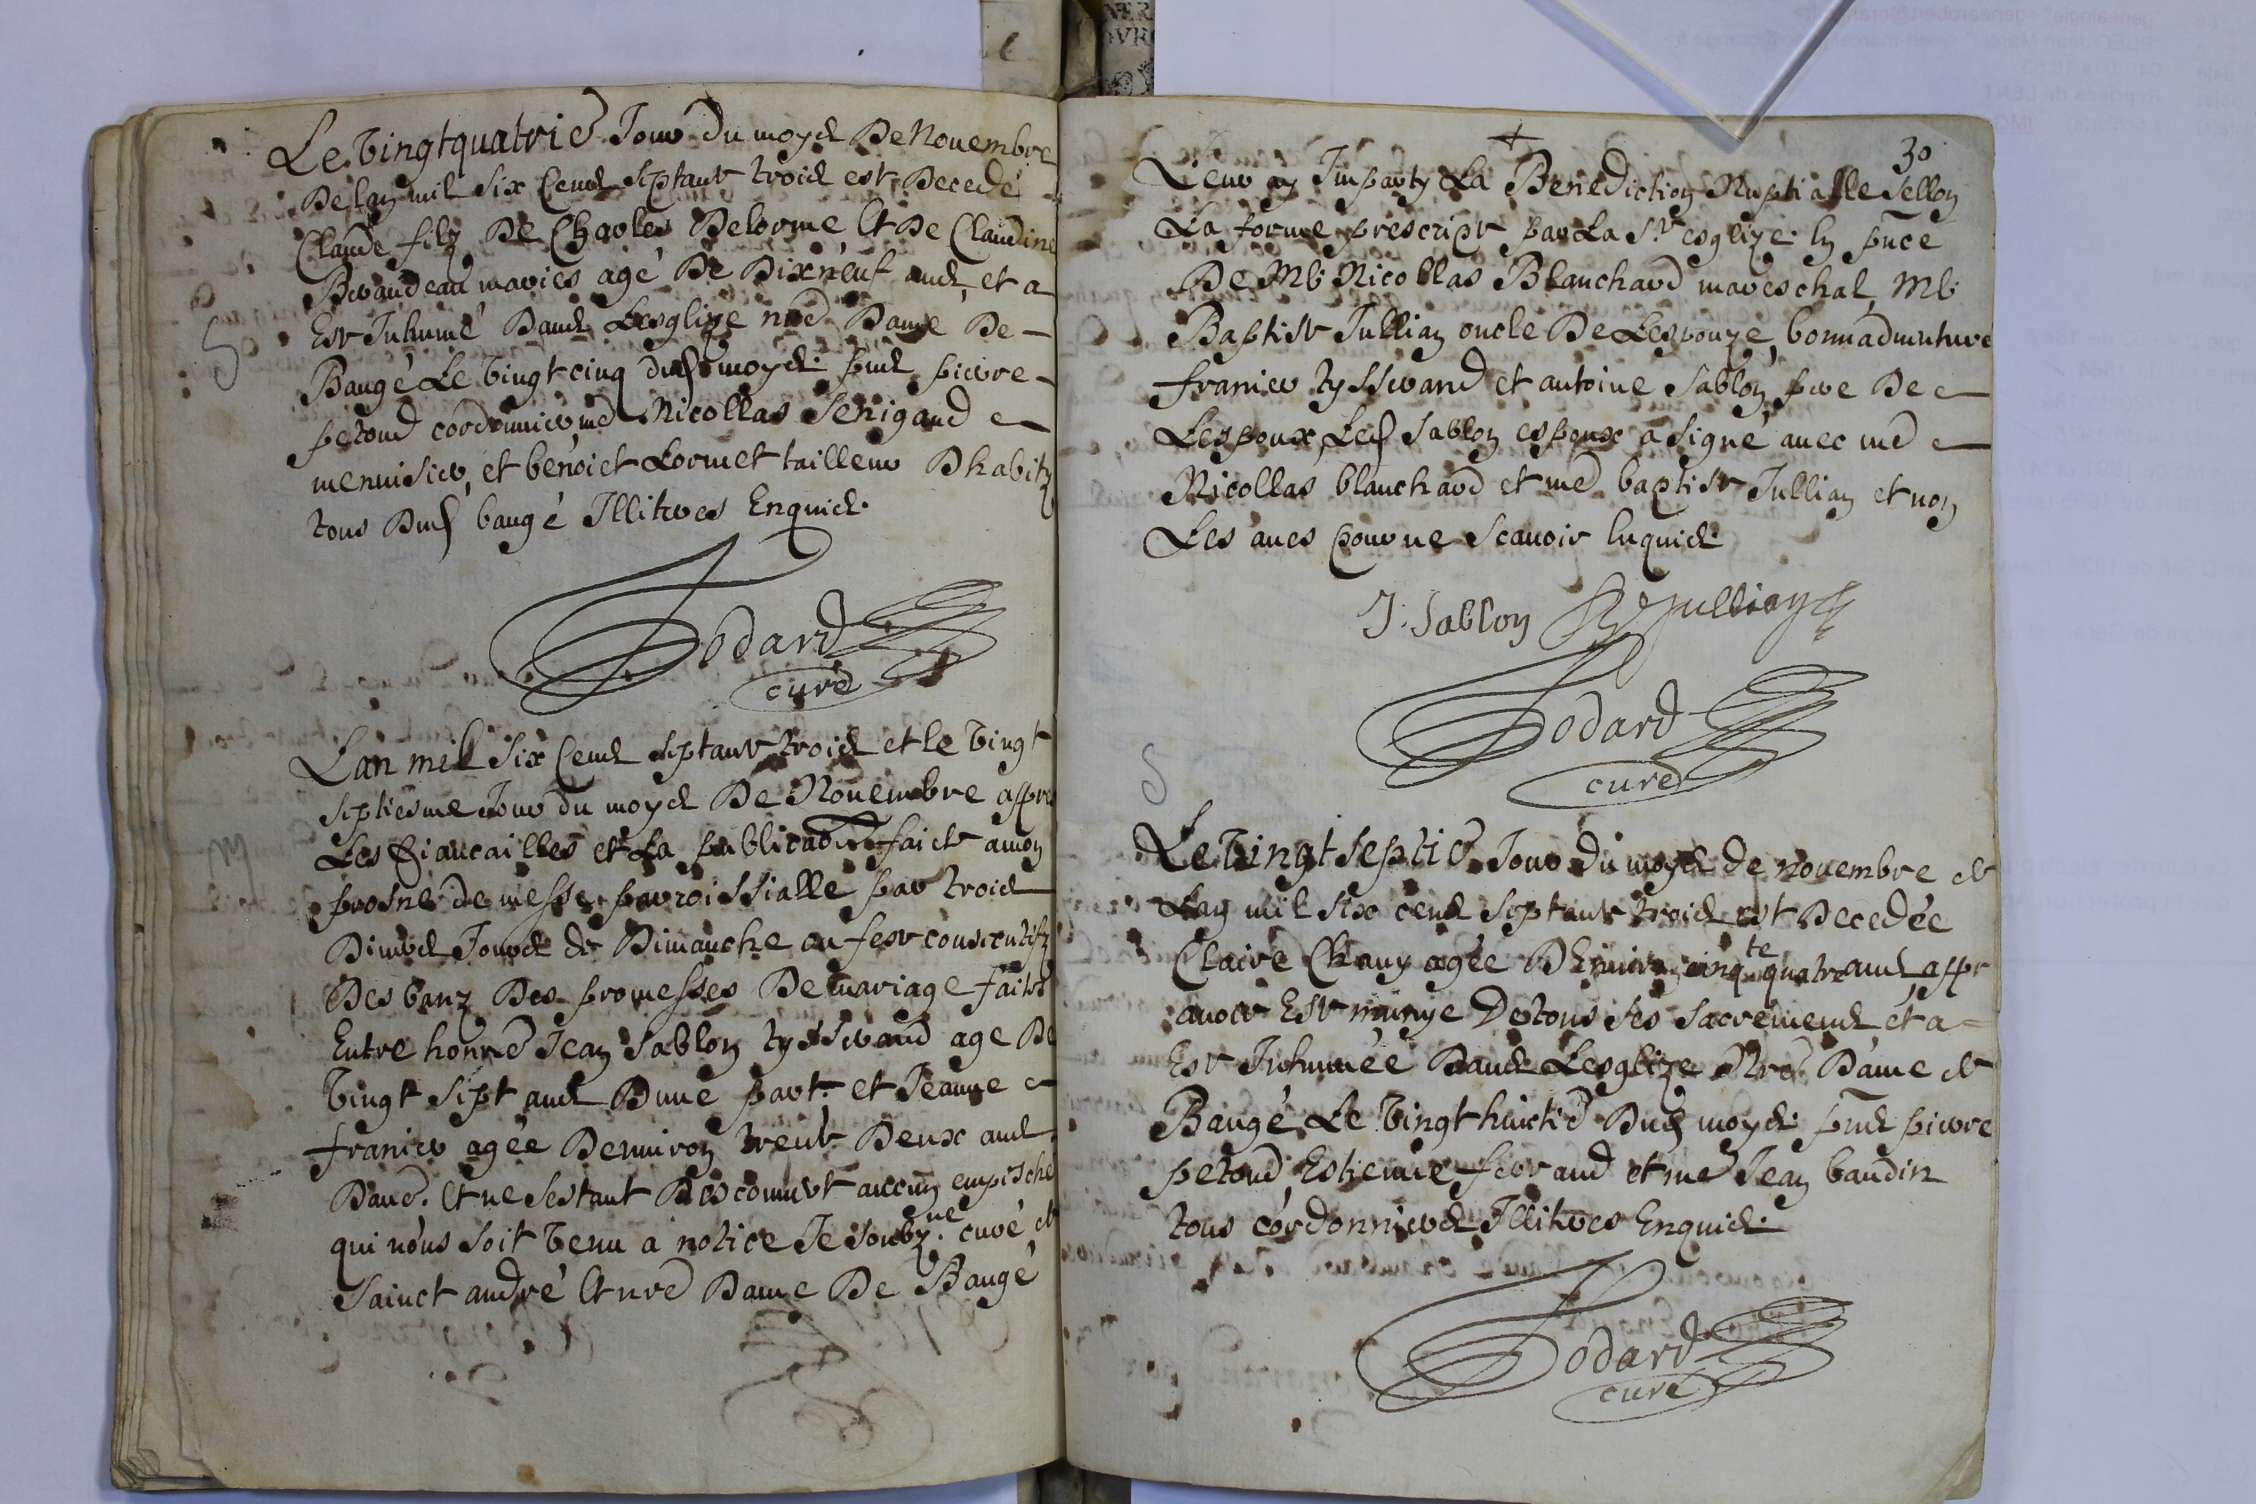 Le vingtquatrie Jour du moys de Novembre
De lan mil six cens septante trois est decedé
Claude filz de Charles Delorme et de Claudine
Brandeau mariés agé de dixneuf ans, et a
Est Inhumé dans Lesglize nre Dame de
Baugé Le vingt cinq dud moys. pns pierre
petoud cordonnier me Nicollas Senigaud
menuisier, et benoict Lormet tailleur D habitz
tous dud baugé Illitres Enquis.
Dodard
curé
Lan mil six cens septante trois et le vingt
septiesme Jour du moys de Novembre appres
Les fiancailles et La publicaon faicte a mon
prosne de messe parroissialle par trois
Divers Jours de Dimanche ou feste consecutifz
Des banz des promesses de mariage faites
Entre honnê Jean Sablon tysserand age de
vingt sept ans Dune part. et Jeanne
franier agée denviron trente deux ans
Daue. Et ne sestant descouvert aucun empesche
qui nous soit venu a notice Je soubzne. curé de
Sainct andré et nre Dame de Baugé
30
Leur ay Imparty La Benediction Nuptialle sellon
La forme prescripte par La Ste esglize. En pnce
De Me Nicollas Blanchard mareschal, Me
Baptiste Jullian oncle de Lespouze, bonnadventure
franier tysserand et antoine Sablon pere de
Lespoux, Led Sablon espoux a signé avec me
Nicollas blanchard et me baptiste Jullian et non
Les aues pour ne scavoir Enquis.
J. Sablon Jullian
Dodard
curé
Le vingt septie Jour du moys de novembre de
Lan mil six cens septante trois est decedée
Claire Chany agée D Environ cinqte quatre ans appr
avoir Este munye De tous ses sacremens et a
Este Inhumée dans Lesglize Nre Dame de
Baugé Le vingt huictie dud moys. pns pierre
petoud, Estienne ferrand et me Jean baudin
tous cordonniers Illitres Enquis.
Dodard
curé